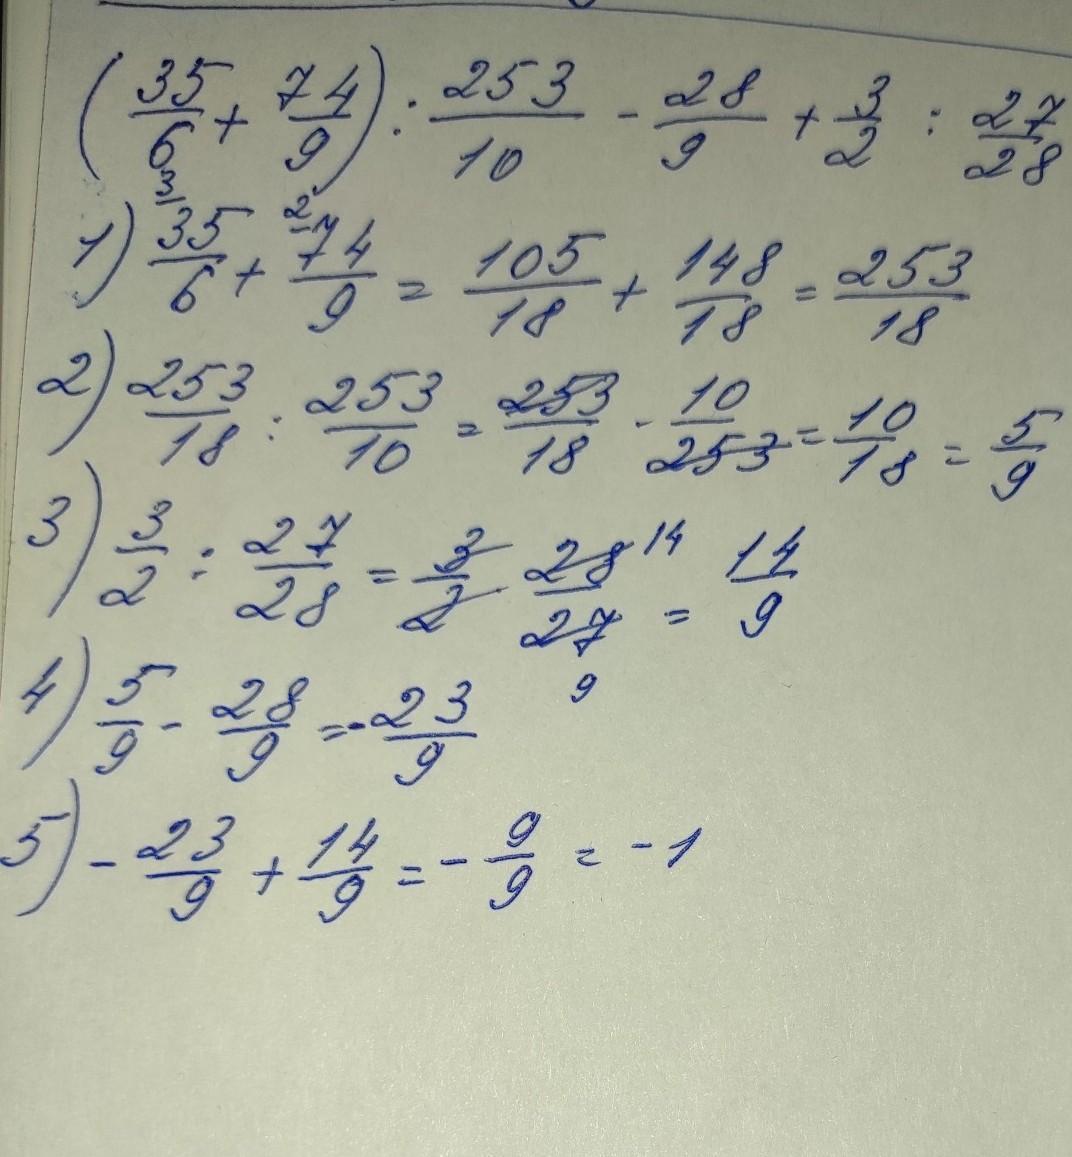 (35/6 + 74/9) : 253/10 - 28/9 + 3/2 : 27/28
1) 35/6 (3 + 74/9 (2 = 105/18 + 148/18 = 253/18
2) 253/18 : 253/10 = 253/18 · 10/253 = 10/18 = 5/9
3) 3/2 : 27/28 = 3/2 28/27 14 9 = 14/9
4) 5/9 - 28/9 = -23/9
5) -23/9 + 14/9 = -9/9 = -1